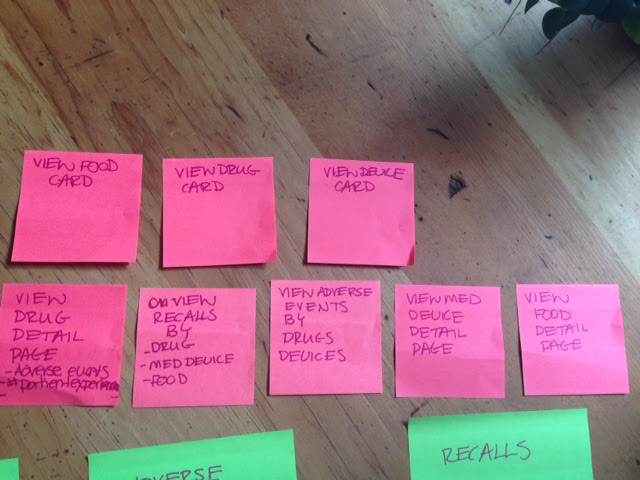 VIEW FOOD
CARD
VIEW DRUG
CARD
VIEW DEVICE
CARD
VIEW
DRUG
DETAIL
PAGE
- ADVERSE EVENTS
patient experience
VIEW
RECALLS
BY
- DRUG
- MED DEVICE
- FOOD
VIEW ADVERSE
EVENTS
BY
DRUGS
DEVICES
VIEW MED
DEVICE
DETAIL
PAGE
VIEW
FOOD
DETAIL
PAGE
ADVERSE
RECALLS